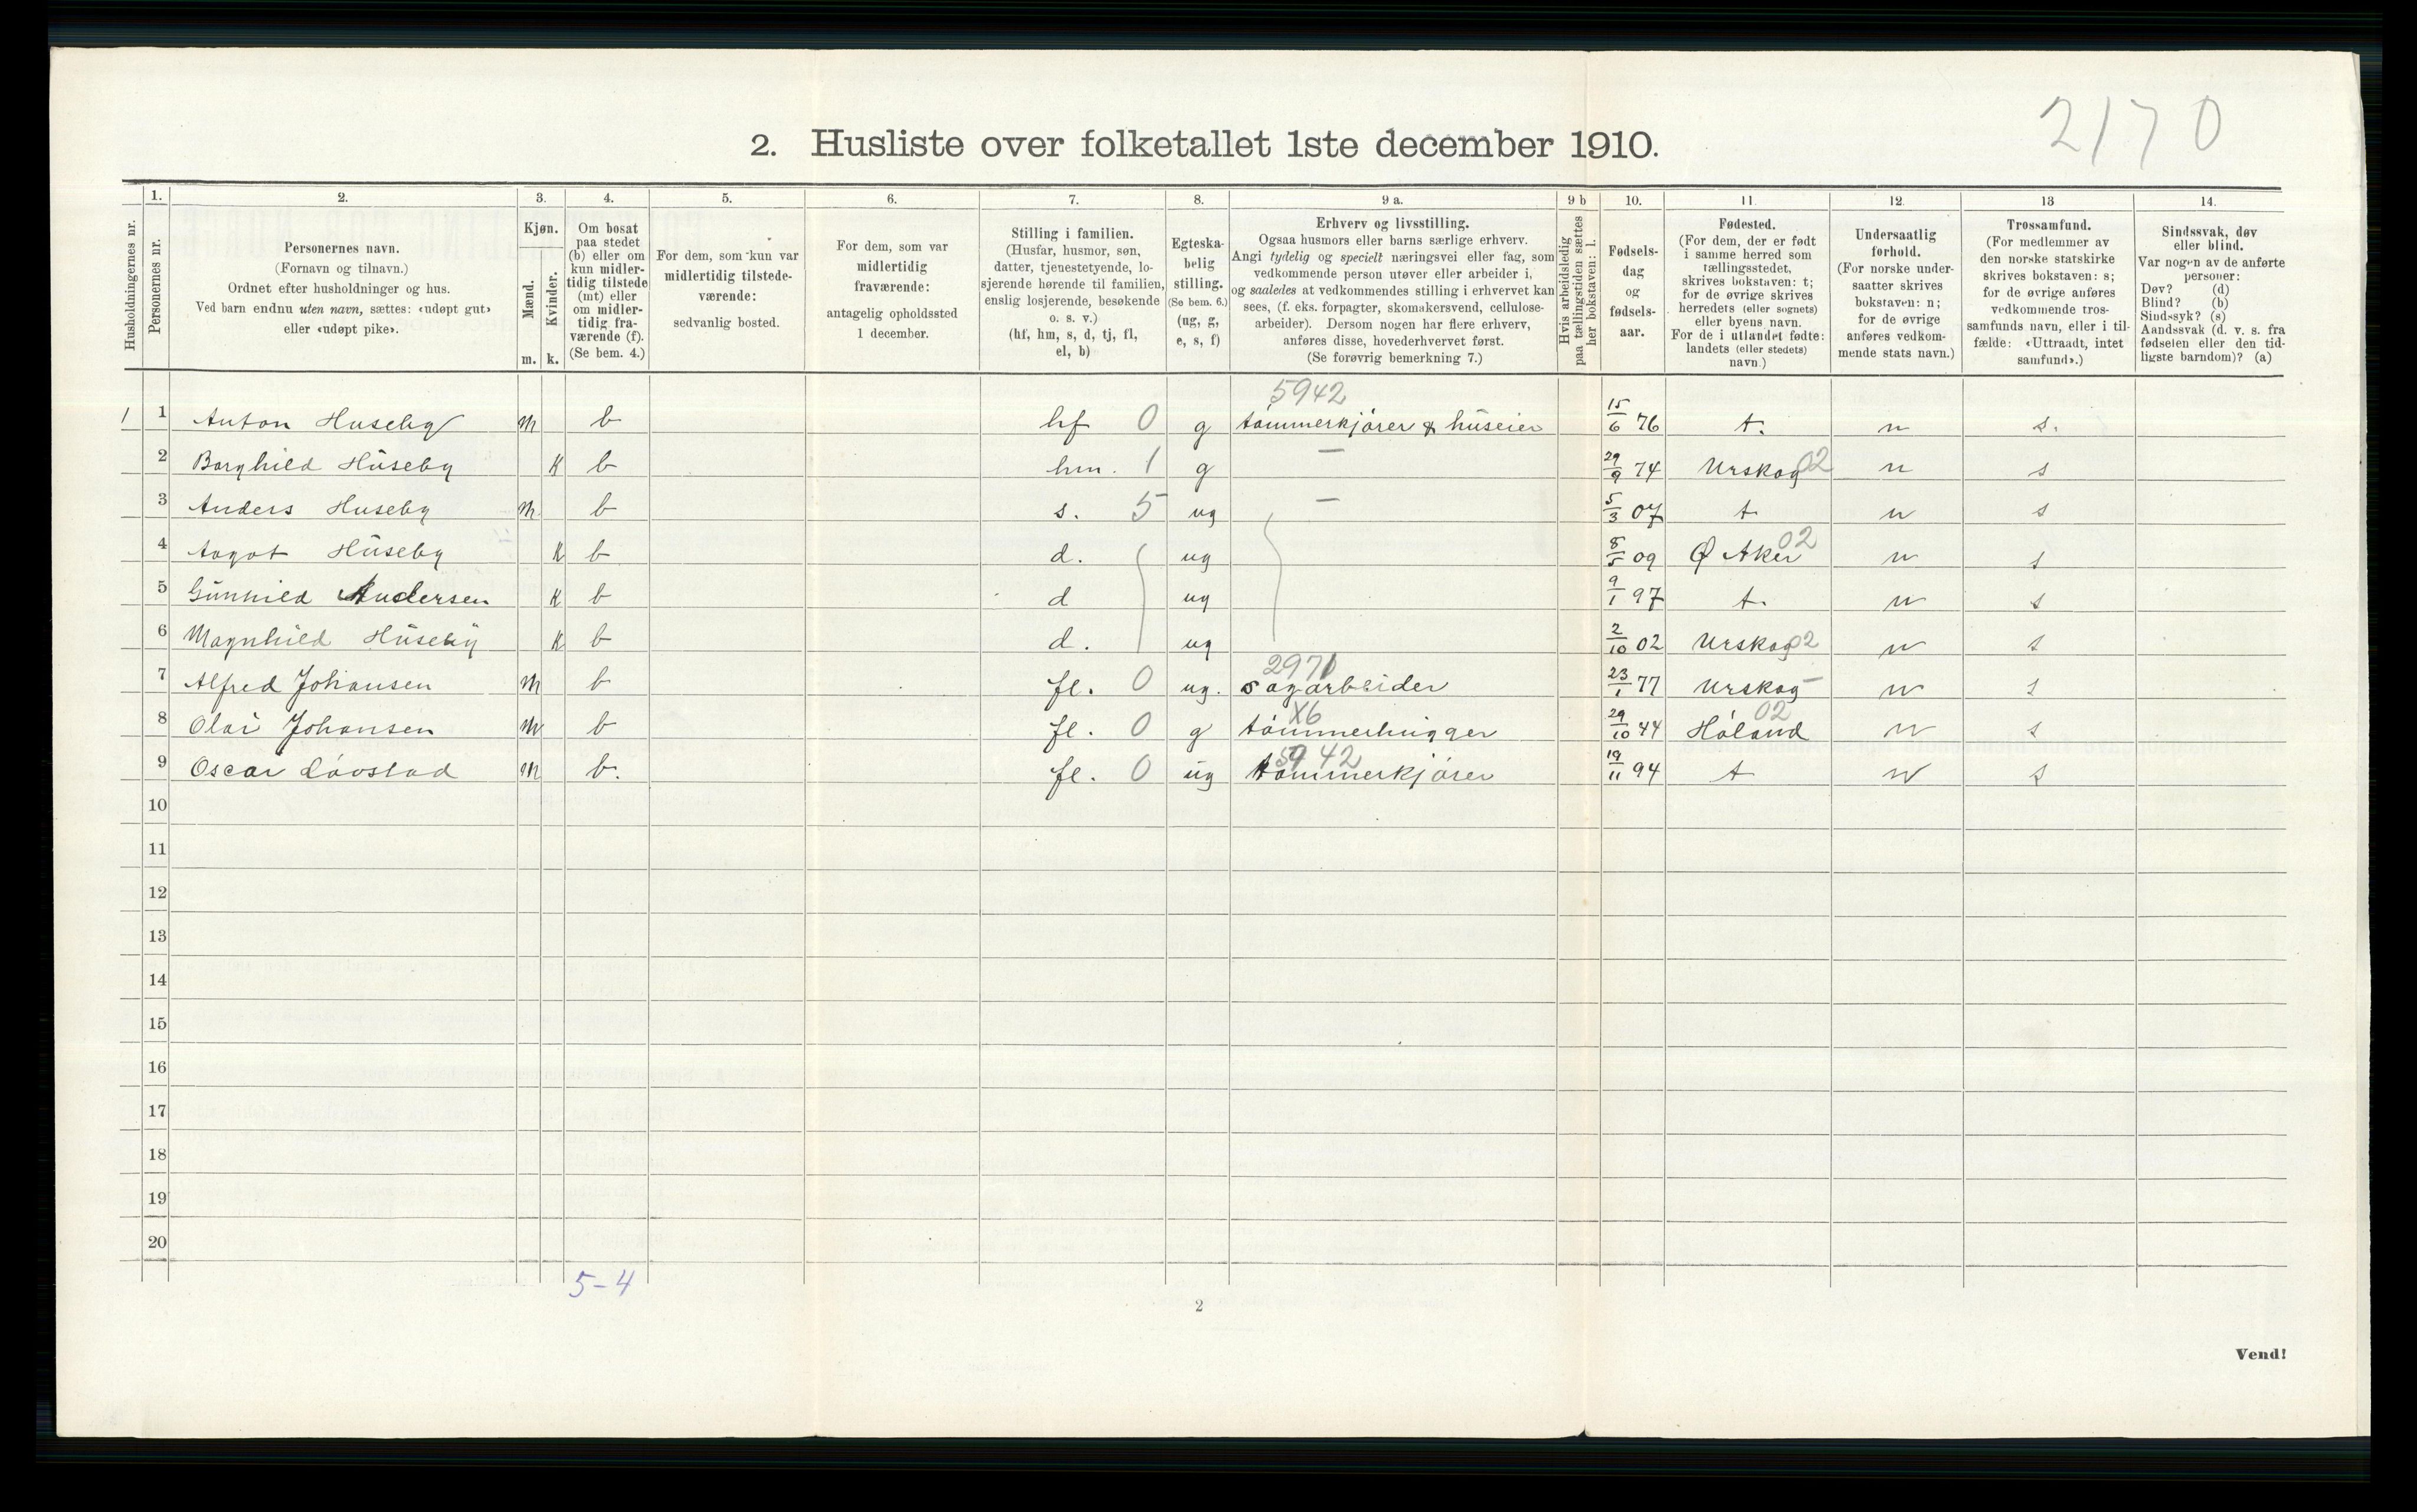 2170
2. Husliste over folketallet 1ste december 1910.
1. 2. 3. 4. 5. 6. 7. 8. 9 a. 9 b 10. 11. 12. 13 14.
Husholdningernes nr.
Personernes nr.
Personernes navn.
(Fornavn og tilnavn.)
Ordnet efter husholdninger og hus.
Ved barn endnu uten navn, sættes: «udøpt gut»
eller «udøpt pike».
Kjøn.
Mænd.
Kvinder.
m. k.
Om bosat
paa stedet
(b) eller om
kun midler-
tidig tilstede
(mt) eller
om midler-
tidig fra-
værende (f).
(Se bem. 4.)
For dem, som kun var
midlertidig tilstede-
værende:
sedvanlig bosted.
For dem, som var
midlertidig
fraværende:
antagelig opholdssted
1 december.
Stilling i familien.
(Husfar, husmor, søn,
datter, tjenestetyende, lo-
sjerende hørende til familien,
enslig losjerende, besøkende
o. s. v.)
(hf, hm, s, d, tj, fl,
el, b)
Egteska-
belig
stilling.
(Se bem. 6.)
(ug, g,
e, s, f)
Erhverv og livsstilling.
Ogsaa husmors eller barns særlige erhverv.
Angi tydelig og specielt næringsvei eller fag, som
vedkommende person utøver eller arbeider i,
og saaledes at vedkommendes stilling i erhvervet kan
sees, (f. eks. forpagter, skomakersvend, cellulose-
arbeider). Dersom nogen har flere erhverv,
anføres disse, hovederhvervet først.
(Se forøvrig bemerkning 7.)
Hvis arbeidsledig
paa tællingstiden sættes
her bokstaven: l.
Fødsels-
dag
og
fødsels-
aar.
Fødested.
(For dem, der er født
i samme herred som
tællingsstedet,
skrives bokstaven: t;
for de øvrige skrives
herredets (eller sognets)
eller byens navn.
For de i utlandet fødte:
landets (eller stedets)
navn.)
Undersaatlig
forhold.
(For norske under-
saatter skrives
bokstaven: n;
for de øvrige
anføres vedkom-
mende stats navn.)
Trossamfund.
(For medlemmer av
den norske statskirke
skrives bokstaven: s;
for de øvrige anføres
vedkommende tros-
samfunds navn, eller i til-
fælde: «Uttraadt, intet
samfund».)
Sindssvak, døv
eller blind.
Var nogen av de anførte
personer:
Døv? (d)
Blind? (b)
Sindssyk? (s)
Aandssvak (d. v. s. fra
fødselen eller den tid-
ligste barndom)? (a)
5942
1 1 Anton Huseby m b hf 0 g tømmerkjører & huseier 15/6 76 t. n s.
2 Borghild Huseby k b hm. 1 g — 29/9 74 Urskog 02 n s
3 Anders Huseby m b s. 5 ug — 5/3 07 t n s
4 Aagot Huseby k b d. ug 8/5 09 Ø Aker 02 n s
5 Gunhild Andersen k b d ug 9/1 97 t. n s
6 Magnhild Huseby k b d. ug 2/10 02 Urskog 02 n s
2971
7 Alfred Johansen m b fl. 0 ug. sagarbeider 23/1 77 Urskog — n s
X6 02
8 Olai Johansen m b fl. 0 g tømmerhugger 29/10 44 Høland n s
5942
9 Oscar Løvstad m b. fl. 0 ug tømmerkjører 19/11 94 t n s
10
11
12
13
14
15
16
17
18
19
20
5-4
2
Vend!